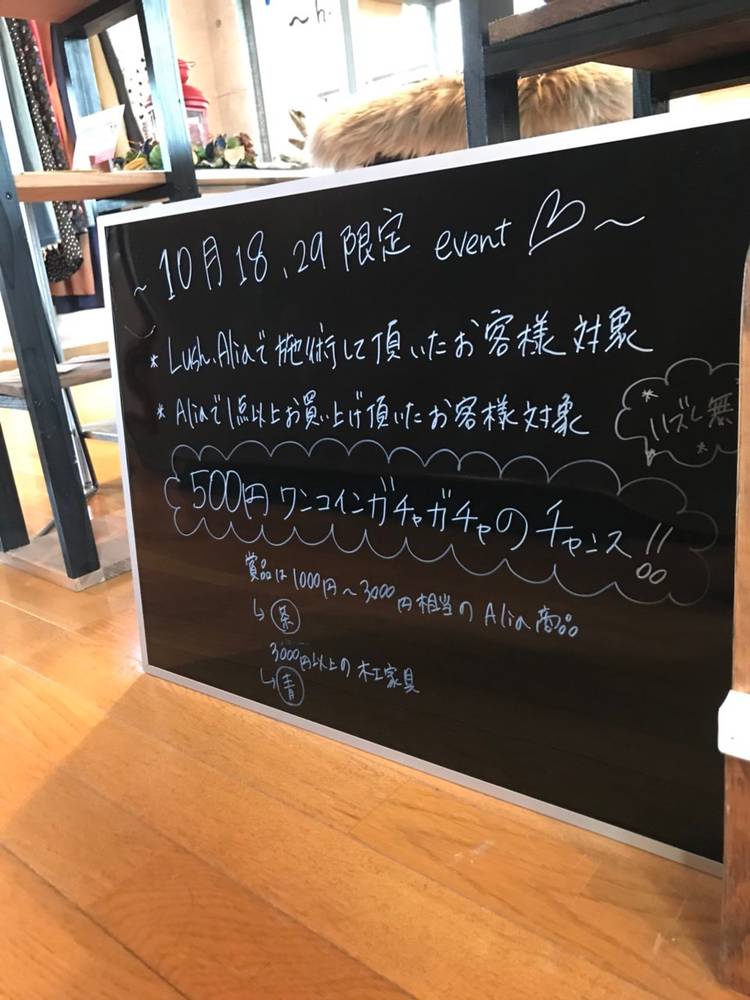 ~10月18、29限定 event ♡~
* Lush.Aliaで施術して頂いたお客様対象
* Aliaで1点以上お買い上げ頂いたお客様対象
ハズレ無
500円ワンコインガチャガチャのチャンス!!
賞品は1000円~3000円相当のAlia商品
↳
3000円以上の木工家具
↳ 青